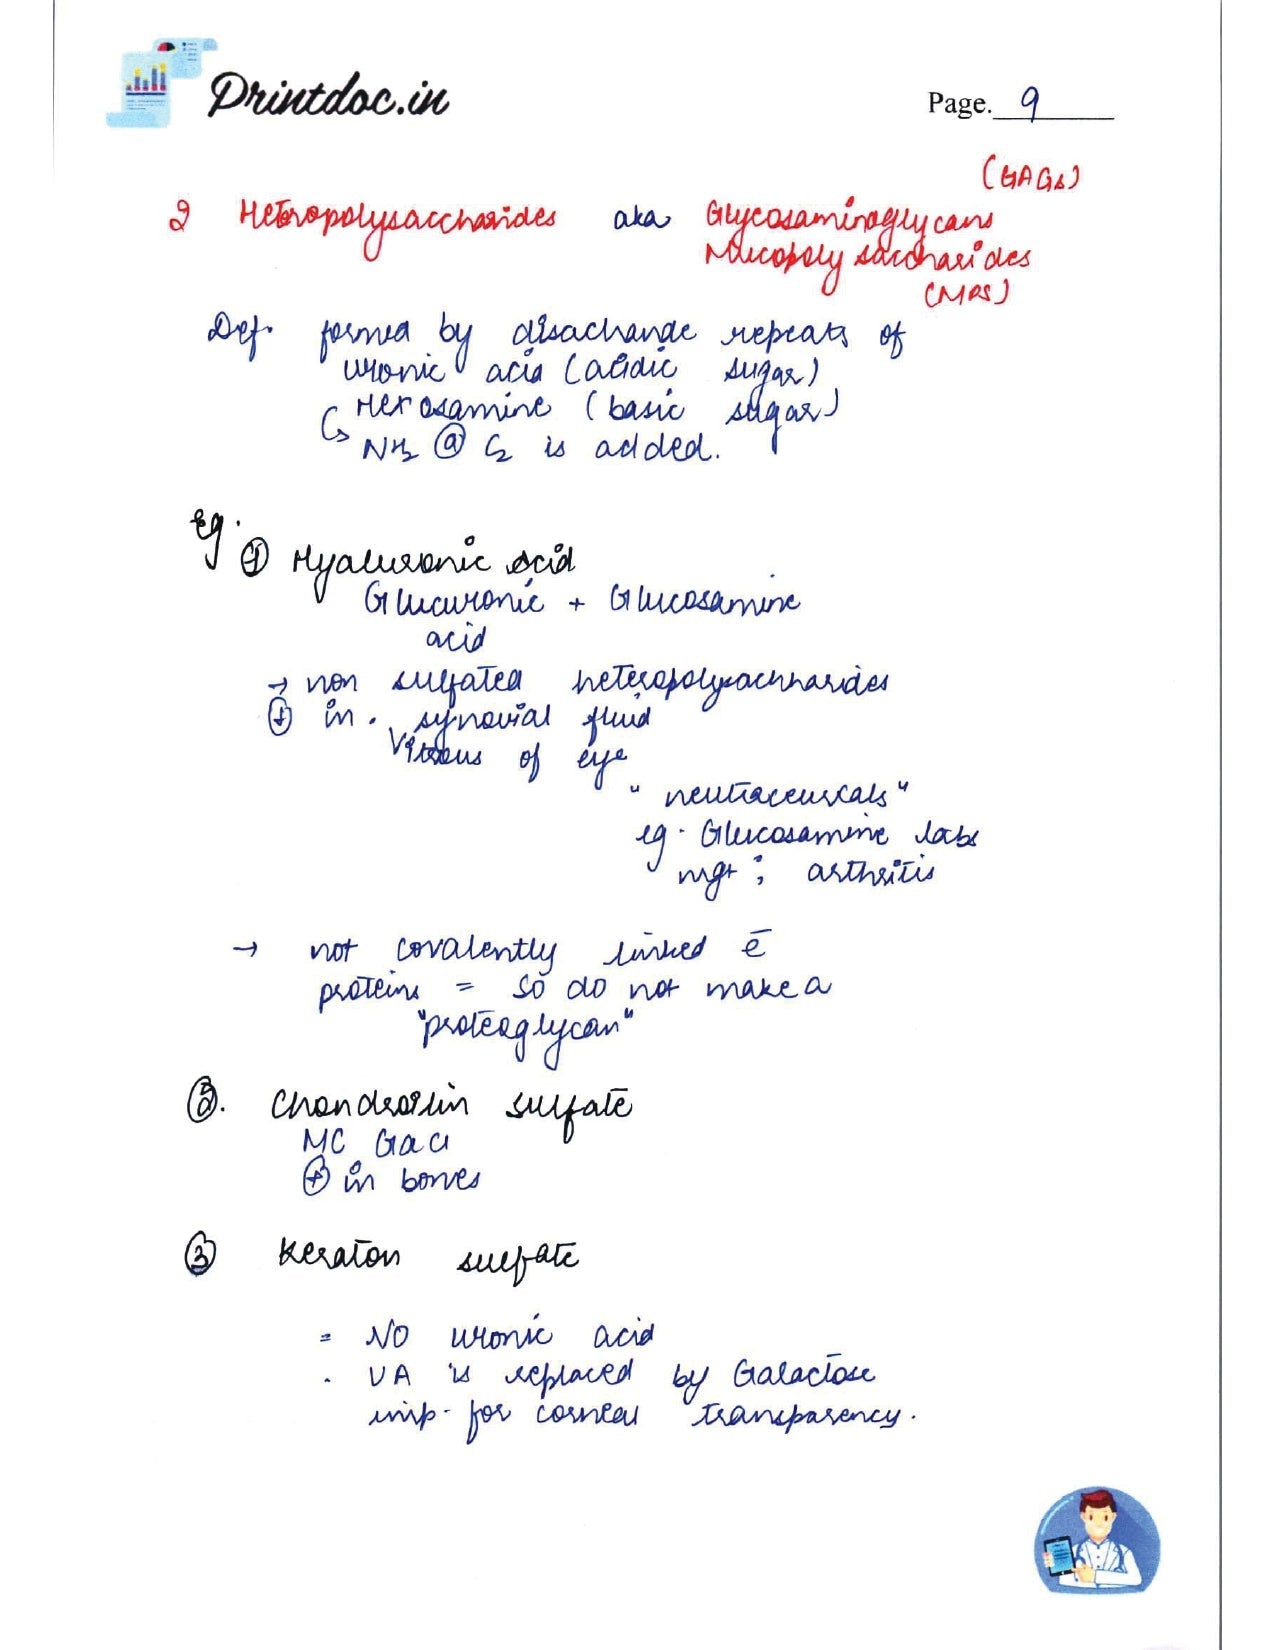 Printdoc.in
Page. 9
(GAGs)
2 Heteropolysaccharides aka Glycosaminoglycans
Mucopolysaccharides
(MPS)
Def. formed by disaccharide repeats of
uronic acid (acidic sugar)
Hexosamine (basic sugar)
↳ NH2 @ C2 is added.
eg.
① Hyaluronic acid
Glucuronic + Glucosamine
acid
→ non sulfated heteropolysaccharides
⊕ in . synovial fluid
Vitreous of eye
" neutraceuticals "
eg. Glucosamine tabs
mgt : arthritis
→ not covalently linked c̄
proteins = so do not make a
"proteoglycan"
②. Chondroitin sulfate
MC GAG
⊕ in bones
③ Keratan sulfate
= NO uronic acid
. UA is replaced by Galactose
imp. for corneal transparency.